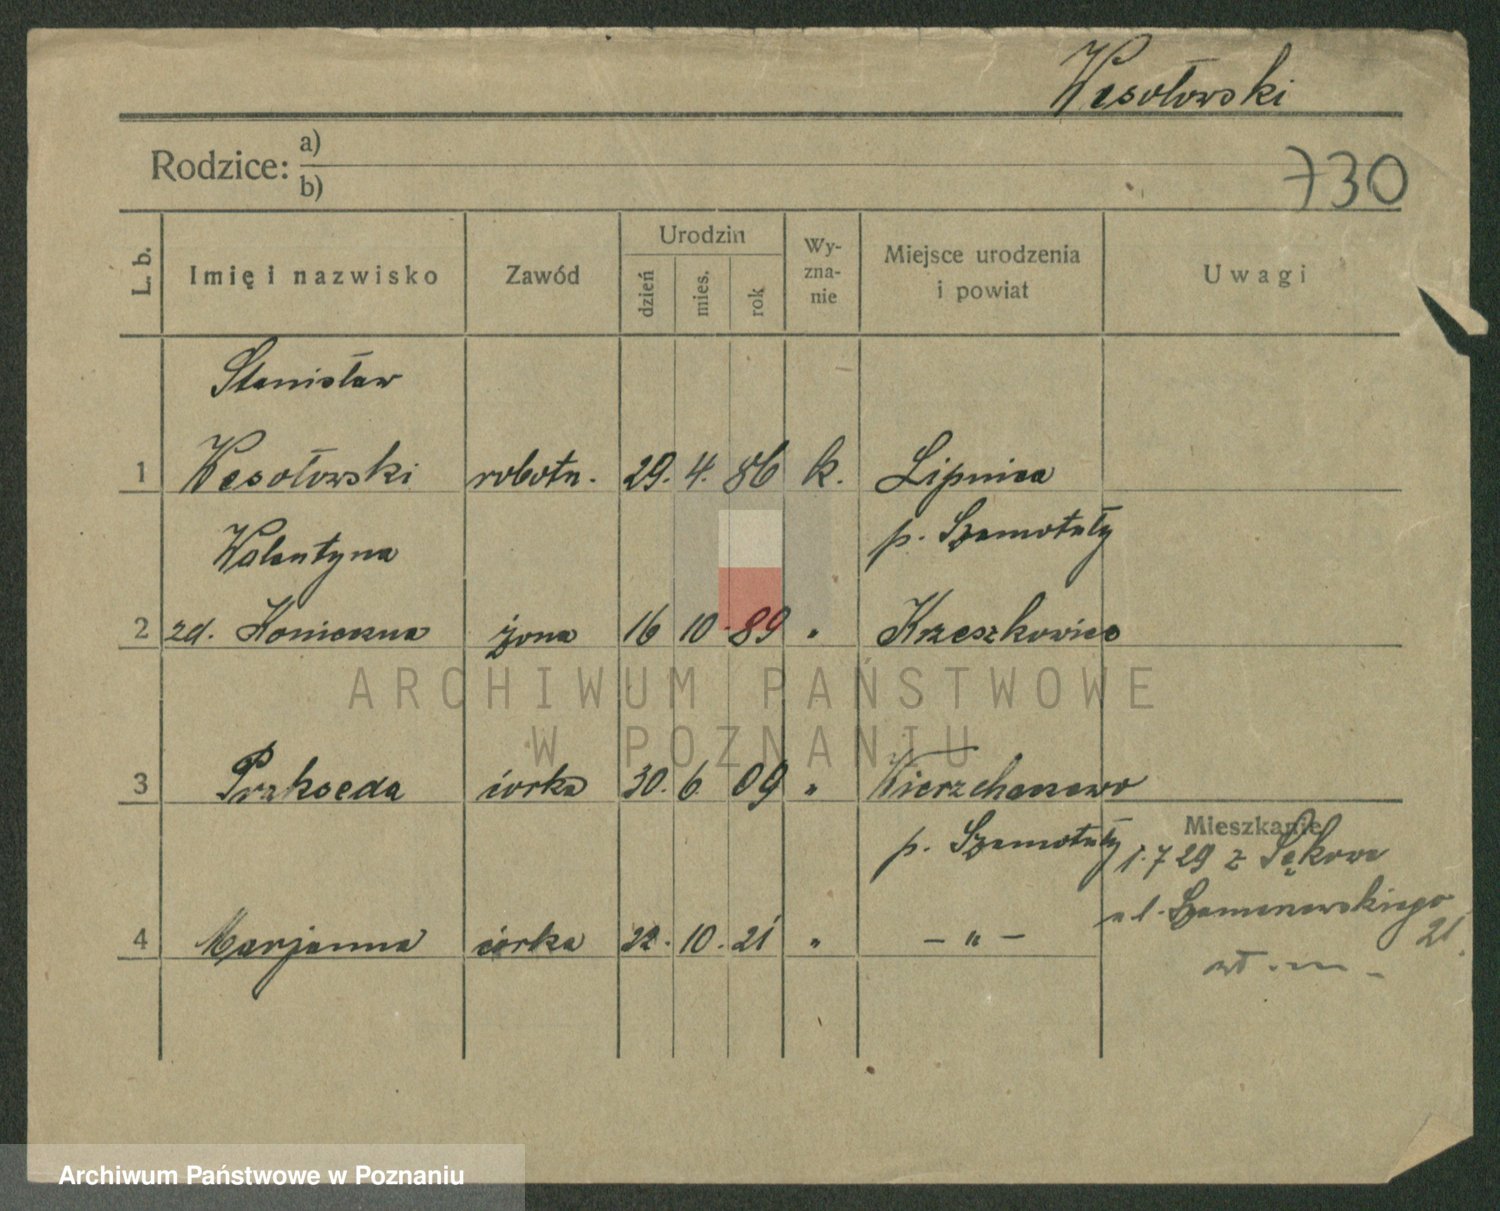 Wesołowski
Rodzice: a)
b)
730
L. b.
Imię i nazwisko
Zawód
Urodzin
dzień
mies.
rok
Wy-
zna-
nie
Miejsce urodzenia
i powiat
Uwagi
Stanisław
1 Wesołowski robotn. 29. 4. 86 k. Lipnica
p. Szamotuły
Walentyna
2 zd. Konieczna żona 16 10 89 " Krzeszkowice
3 Prakseda córka 30. 6 09 " Wierzchaczewo
p. Szamotuły
4 Marjanna córka 22. 10. 21 " – " –
Mieszkanie
1.7 29 z Sękowa
ul. Szamarzewskiego
21.
ARCHIWUM PAŃSTWOWE
W POZNANIU
Archiwum Państwowe w Poznaniu